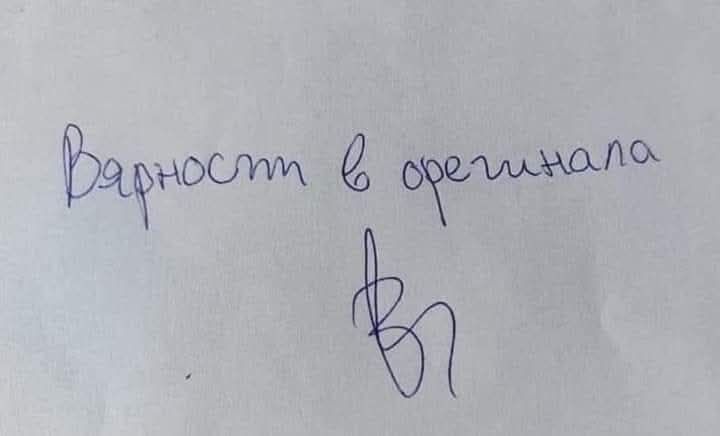 Вярност в орегинала